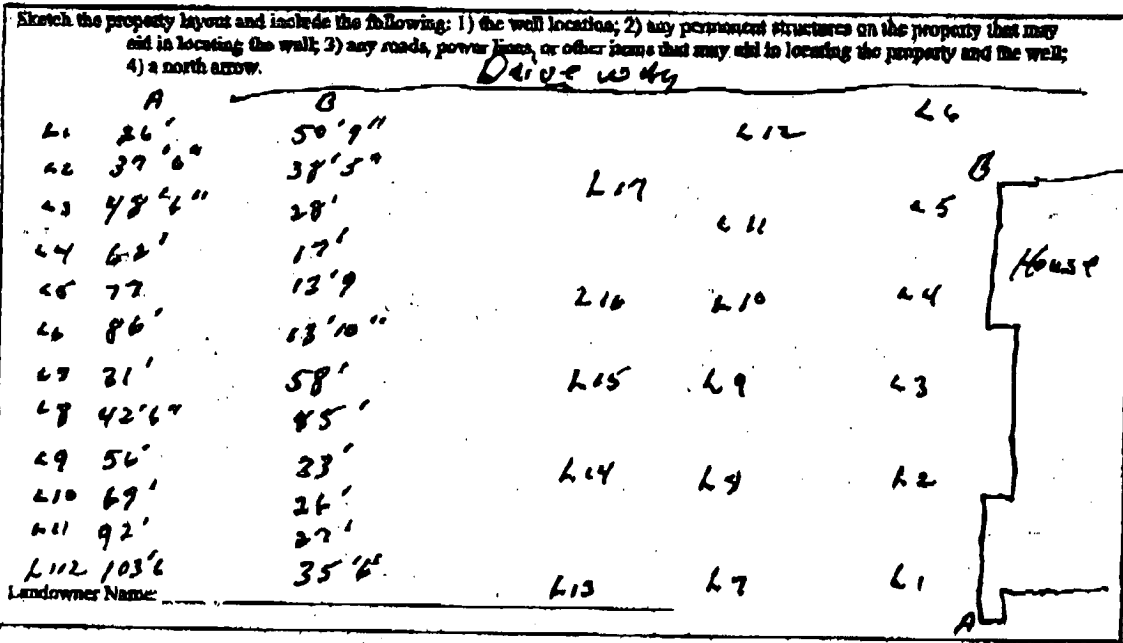 Sketch the property layout and include the following: 1) the well location; 2) any permanent structures on the property that may
aid in locating the well; 3) any roads, power lines, or other items that may aid in locating the property and the well;
4) a north arrow.
Drive way
A B
L1 26' 50'9"
L2 37'6" 38'5"
L3 48'6" 28'
L4 62' 17'
L5 77 13'9
L6 86' 13'10"
L7 31' 58'
L8 42'6" 85'
L9 56' 33'
L10 69' 26'
L11 92' 27'
L112 103'6 35'6"
L6
L12
B
L17
L5
L11
House
L16 L10 L4
L15 L9 L3
L14 L8 L2
L13 L7 L1
A
Landowner Name: